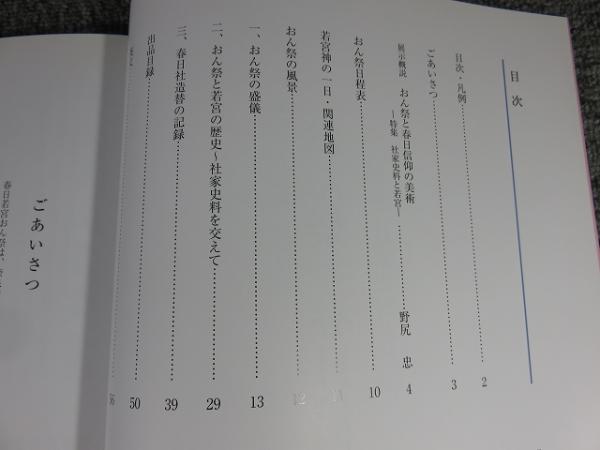 目次
目次・凡例……………2
ごあいさつ……………3
展示概説 おん祭と春日信仰の美術
―特集 社家史料と若宮―……………野尻 忠 4
おん祭日程表……………10
若宮神の一日・関連地図……………11
おん祭の風景……………12
一、おん祭の盛儀……………13
二、おん祭と若宮の歴史~社家史料を交えて……………29
三、春日社造替の記録……………39
出品目録……………50
56
ごあいさつ
春日若宮おん祭は、